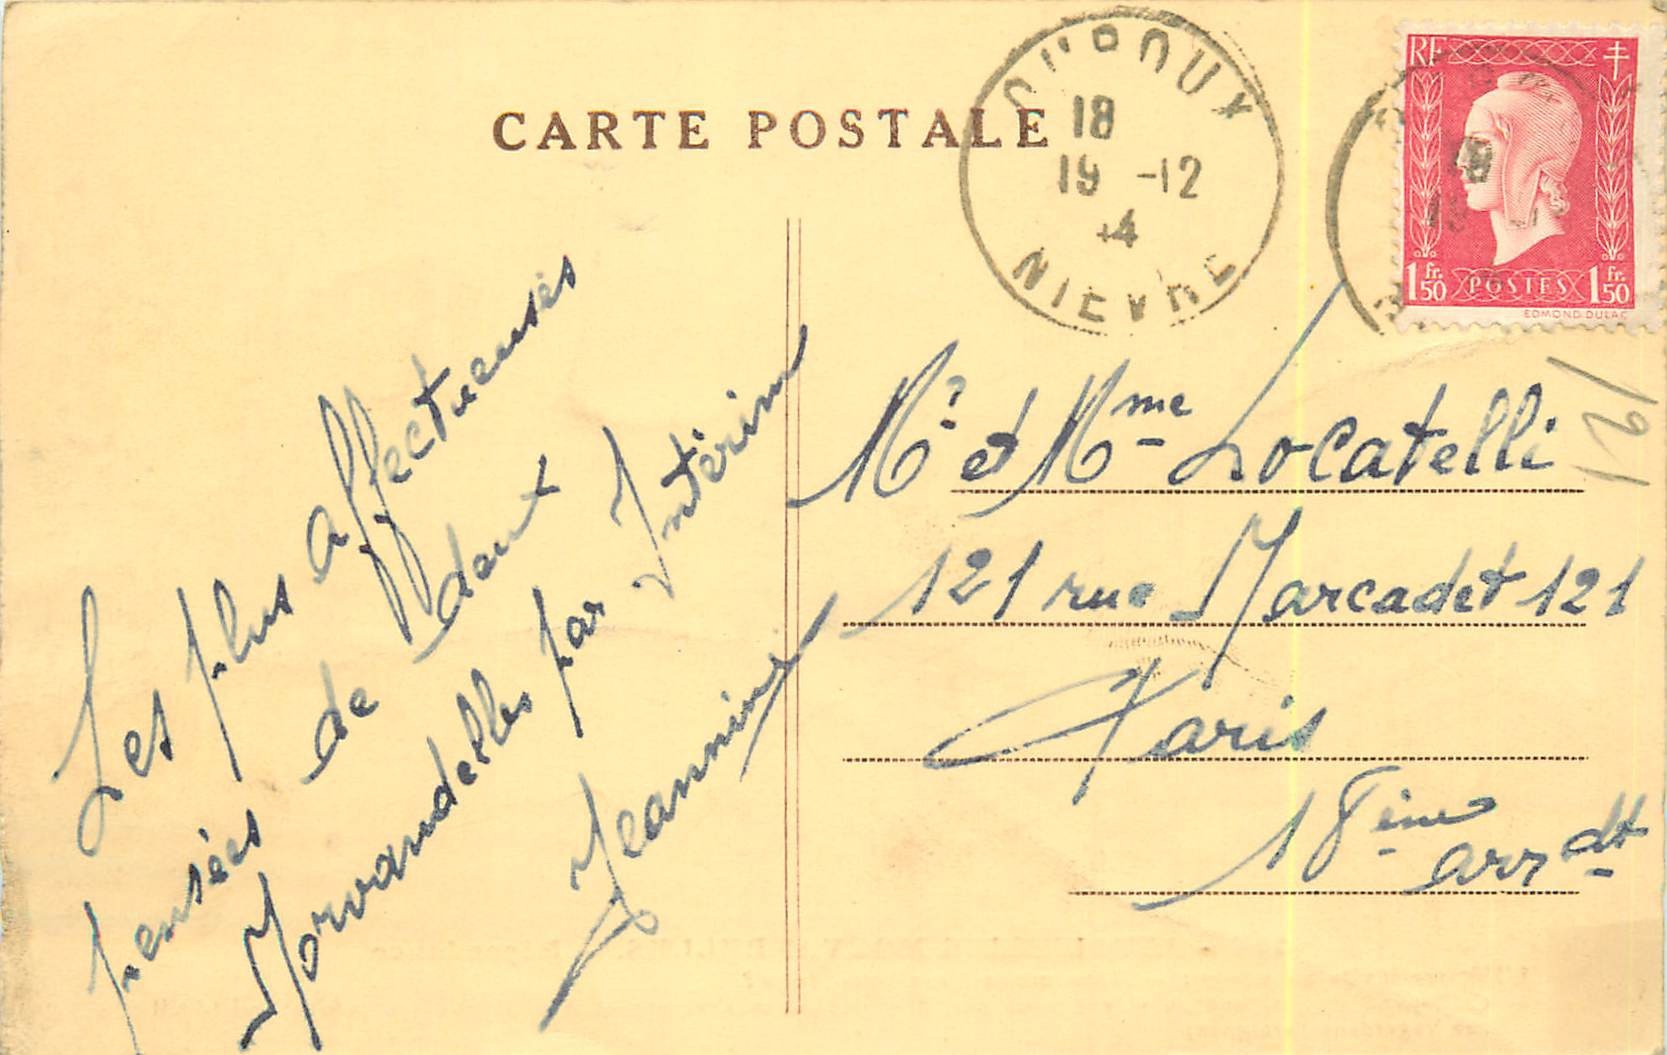 CARTE POSTALE
OUROUX
18
19 -12
4
NIEVRE
RF
1 Fr. 50 POSTES 1 Fr. 50
EDMOND DULAC
Les plus affectueuses
pensées de deux
Morvandelles par Intérim
Jeannine
Mr et Mme Locatelli
121 rue Marcadet 121
Paris
18ème arrdt